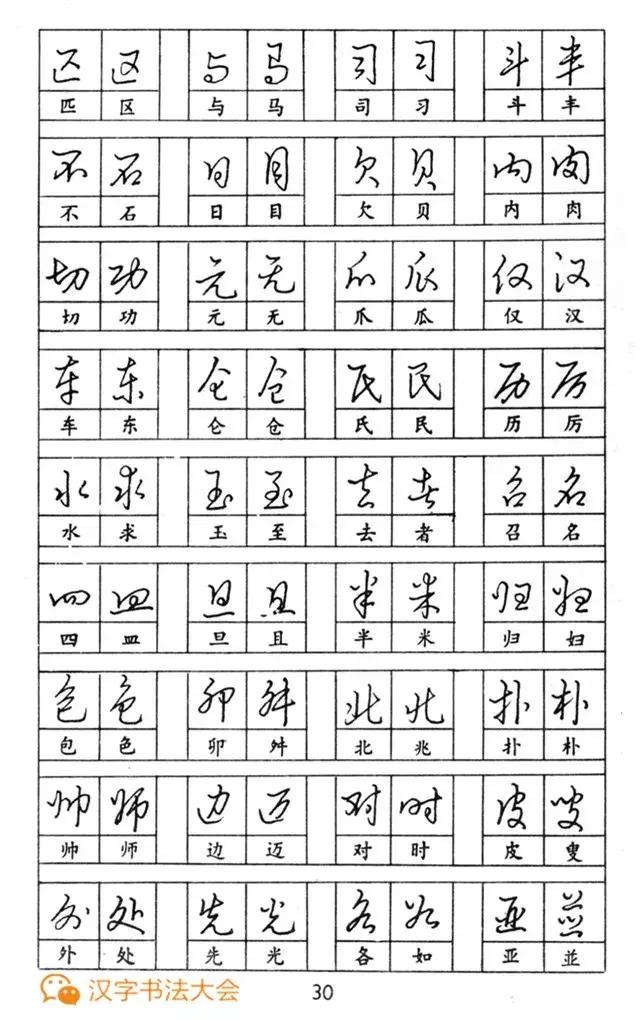 匹 区 与 马 司 习 斗 丰
匹 区 与 马 司 习 斗 丰
不 石 日 目 欠 贝 内 肉
不 石 日 目 欠 贝 内 肉
切 功 元 无 爪 瓜 仅 汉
切 功 元 无 爪 瓜 仅 汉
车 东 仑 仓 氏 民 历 厉
车 东 仑 仓 氏 民 历 厉
水 求 玉 至 去 者 召 名
水 求 玉 至 去 者 召 名
四 皿 旦 且 半 米 归 妇
四 皿 旦 且 半 米 归 妇
包 色 卯 舛 北 兆 扑 朴
包 色 卯 舛 北 兆 扑 朴
帅 师 边 迈 对 时 皮 叟
帅 师 边 迈 对 时 皮 叟
外 处 先 光 各 如 亚 並
外 处 先 光 各 如 亚 並
汉字书法大会
30